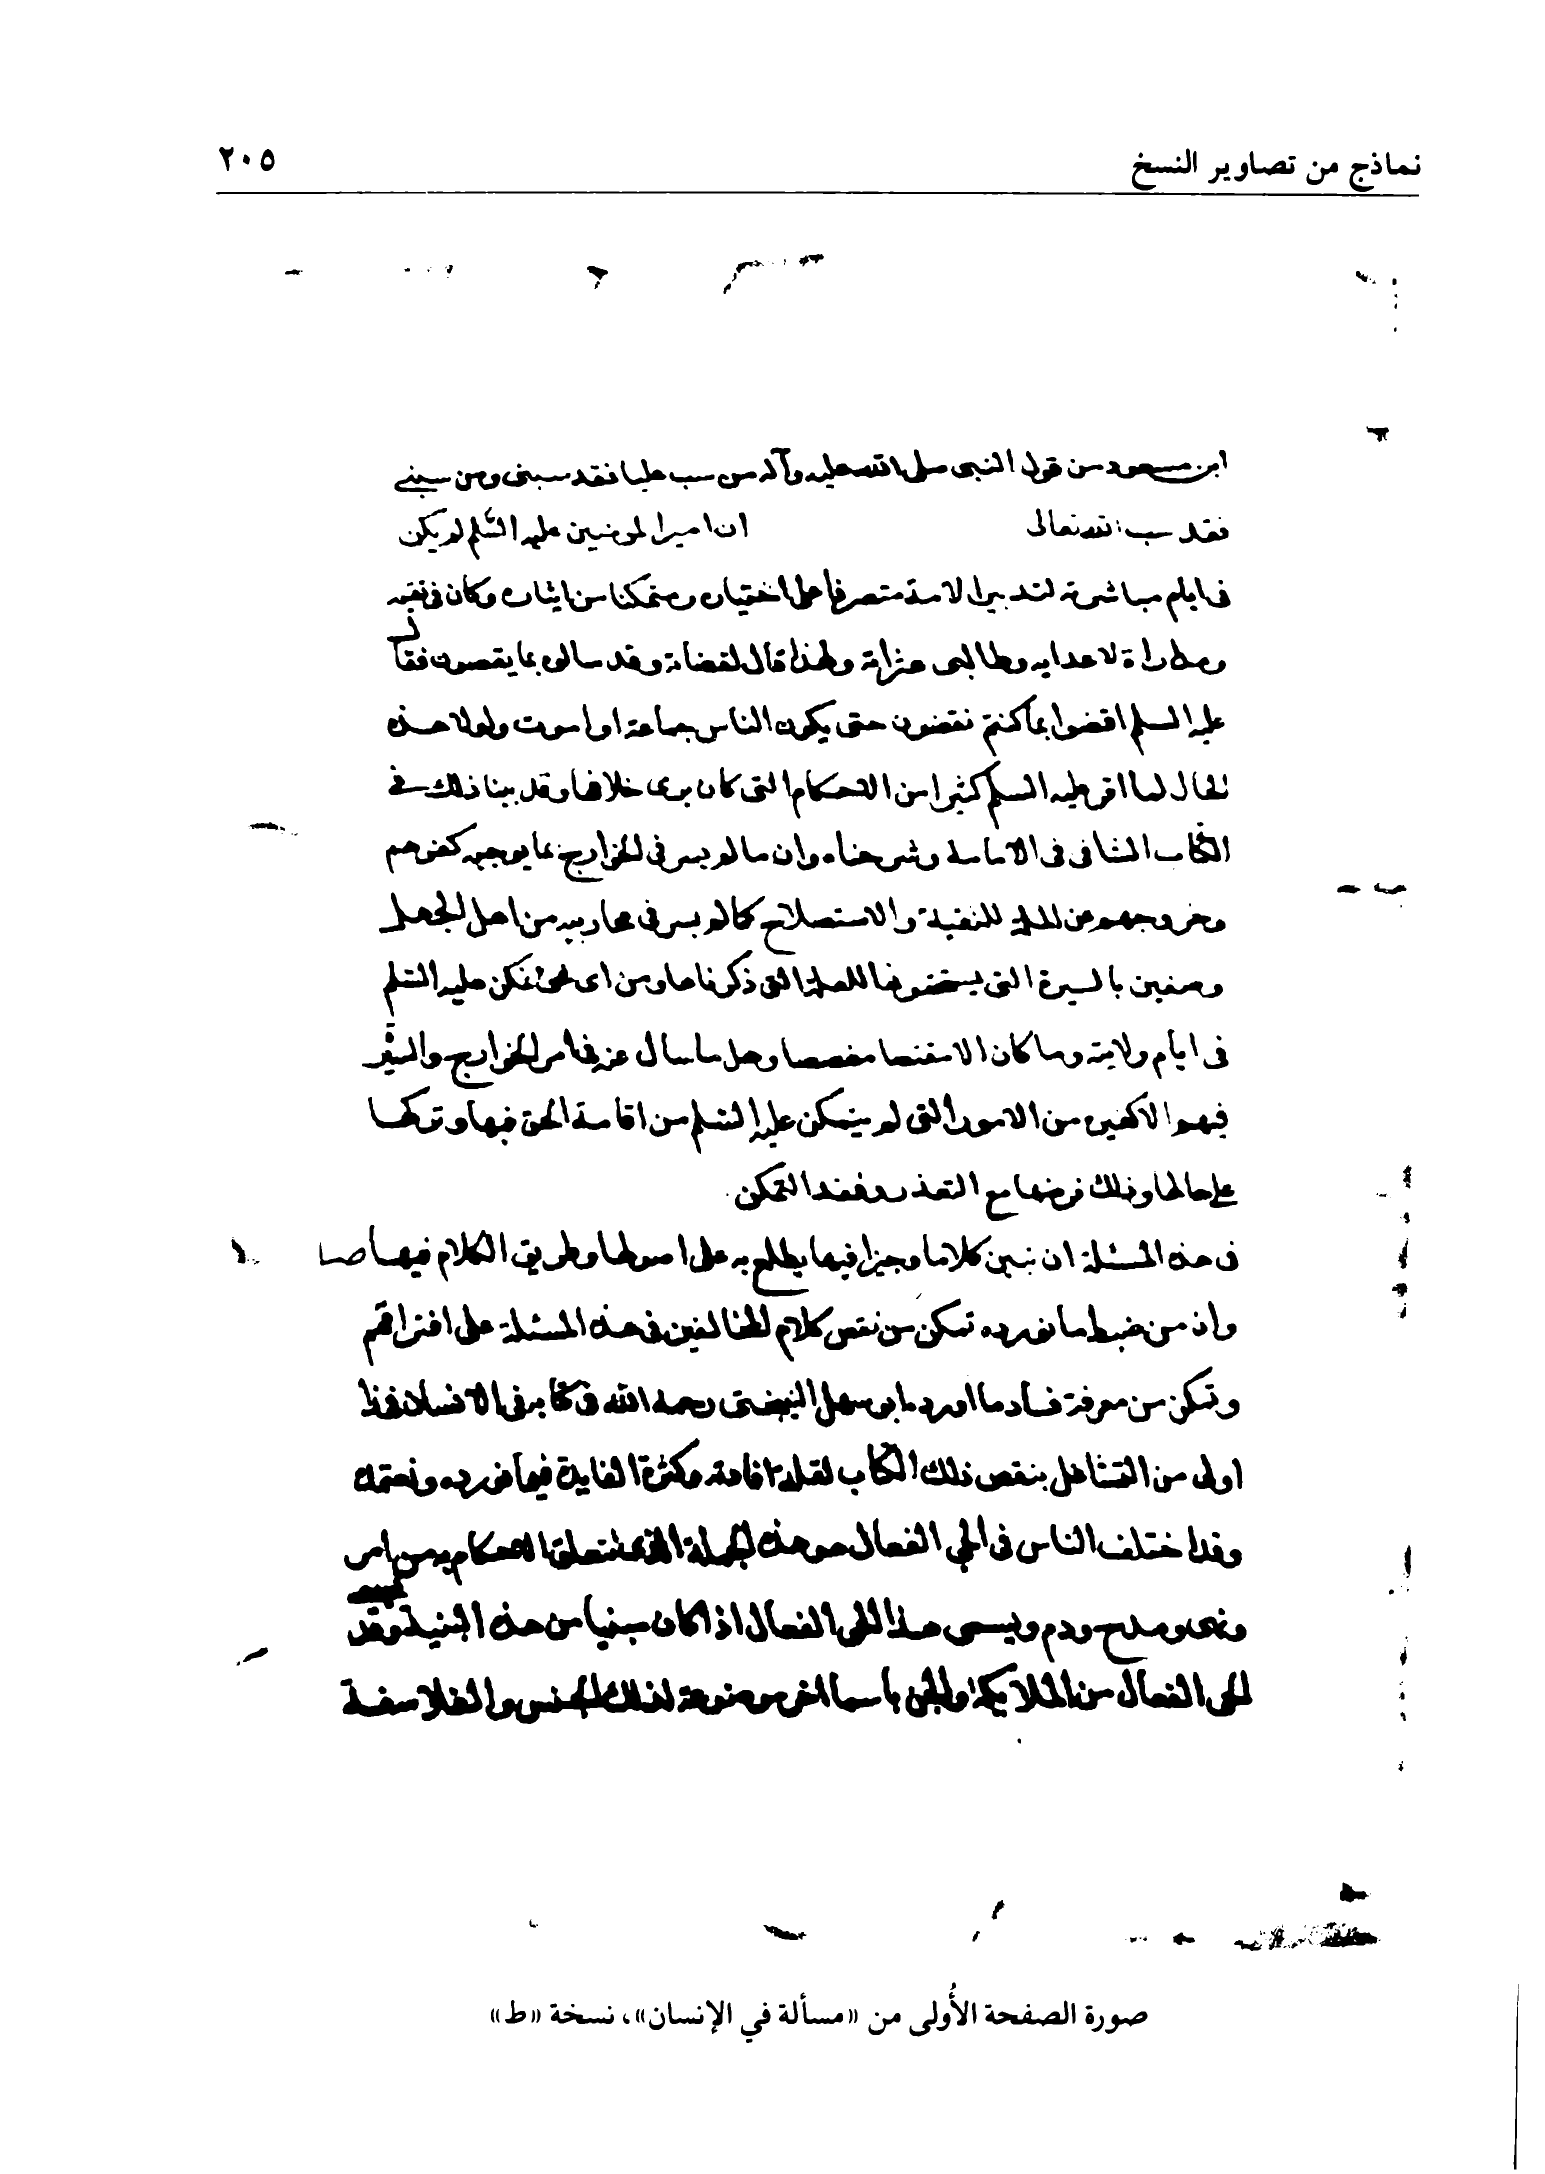 نماذج من تصاوير النسخ ٢٠٥
ابن مسعود من قول النبى صلى الله عليه وآله من سب عليا فقد سبنى ومن سبنى
فقد سب الله تعالى ان امير المومنين عليه السلم لم يكن
فى ايام مباشرته لتدبير الامة متصرفا على اختياره ومتمكنا من ايثاره وكان فى تقية
ومداراة لاعدايه وطالبى عثراته ولهذا قال لقضاته وقد سالوه بما يقضون فقال
عليه السلم اقضوا بما كنتم تقضون حتى يكون الناس جماعة او اموت ولولا هذه
الحال لما اقر عليه السلم كثيرا من الاحكام التى كان يرى خلافها وقد بينا ذلك فى
الكتاب الشافى فى الامامة وشرحناه وان ما لم يسر فى الخوارج بما يوجبه كفرهم
وخروجهم عن الملة للتقية والاستصلاح كما لم يسر فى محاربيه من اهل الجمل
وصفين بالسيرة التى يستحقونها للعلة التى ذكرناها ومن اى شئ تمكن عليه السلم
فى ايام ولايته وما كان الا مغصصا وهل ما سال عنه فى امر الخوارج والسير
فيهم الا كغيره من الامور التى لم يتمكن عليه السلم من اقامة الحق فيها وتركها
على حالها وذلك فرضها مع التعذر وفقد التمكن
فى هذه المسئلة ان نبين كلاما وجيزا فيها يطلع به على اصولها وطريق الكلام فيها
وان من ضبط ما نورده تمكن من نقض كلام المخالفين فى هذه المسئلة على افتراقهم
وتمكن من معرفة فساد ما اورده ابو سهل النوبختى رحمه الله فى كتابه فى الانسان فهذا
اولى من التشاغل بنقض ذلك الكتاب لقلة افادته وكثرة الفايدة فيما نورده ونعتمده
وقد اختلف الناس فى الحى الفعال هو هذه الجملة التى تتعلق الاحكام به من امر
ونهى ومدح وذم ويسمى هذا الحى الفعال اذا كان مبنيا من هذه البنية وقد
الحى الفعال من الملايكة والجن باسما اخر موضوعة لذلك الجنس والفلاسفة
صورة الصفحة الأُولى من «مسألة في الإنسان»، نسخة «ط»